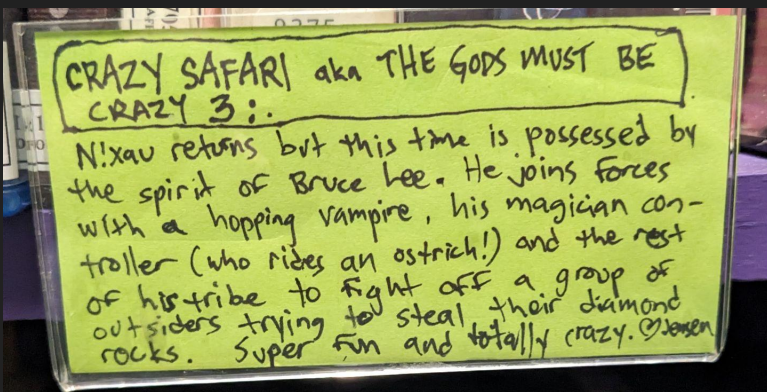 CRAZY SAFARI aka THE GODS MUST BE
CRAZY 3:.
N!xau returns but this time is possessed by
the spirit of Bruce Lee. He joins forces
with a hopping vampire, his magician con-
troller (who rides an ostrich!) and the rest
of his tribe to fight off a group of
outsiders trying to steal their diamond
rocks. Super fun and totally crazy. ♡Jensen